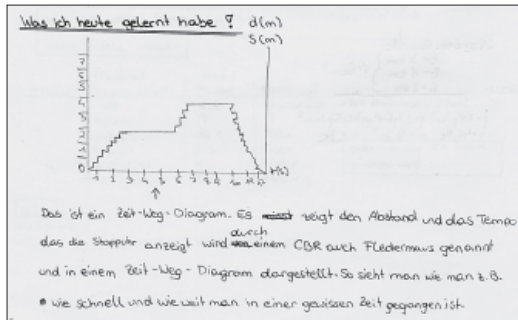 Was ich heute gelernt habe ? d(m)
S(m)
t(s)
Das ist ein Zeit-Weg-Diagram. Es zeigt den Abstand und das Tempo
das die Stoppuhr anzeigt wird durch einem CBR auch Fledermaus genannt
und in einem Zeit-Weg-Diagram dargestellt. So sieht man wie man z.B.
• wie schnell und wie weit man in einer gewissen Zeit gegangen ist.